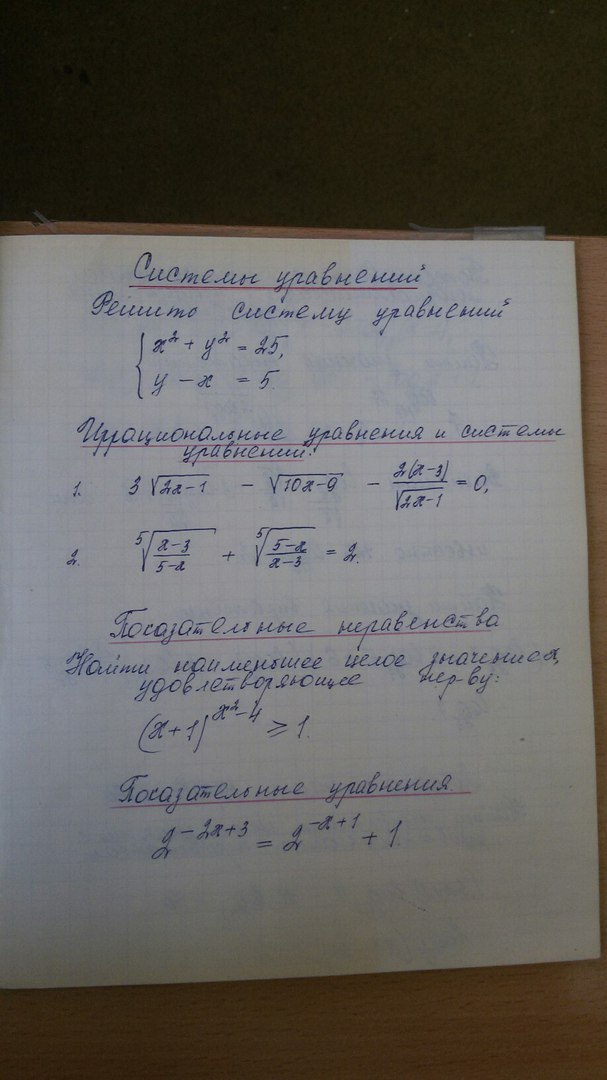 Системы уравнений
Решить систему уравнений
{ x² + y² = 25,
y − x = 5.
Иррациональные уравнения и системы
уравнений.
1. 3√(2x−1) − √(10x−9) − 2(x−3)/√(2x−1) = 0,
2. ⁵√((x−3)/(5−x)) + ⁵√((5−x)/(x−3)) = 2.
Показательные неравенства
Найти наименьшее целое значение x,
удовлетворяющее нер-ву:
(x+1)^(x²−4) ⩾ 1.
Показательные уравнения.
2^(−2x+3) = 2^(−x+1) + 1.